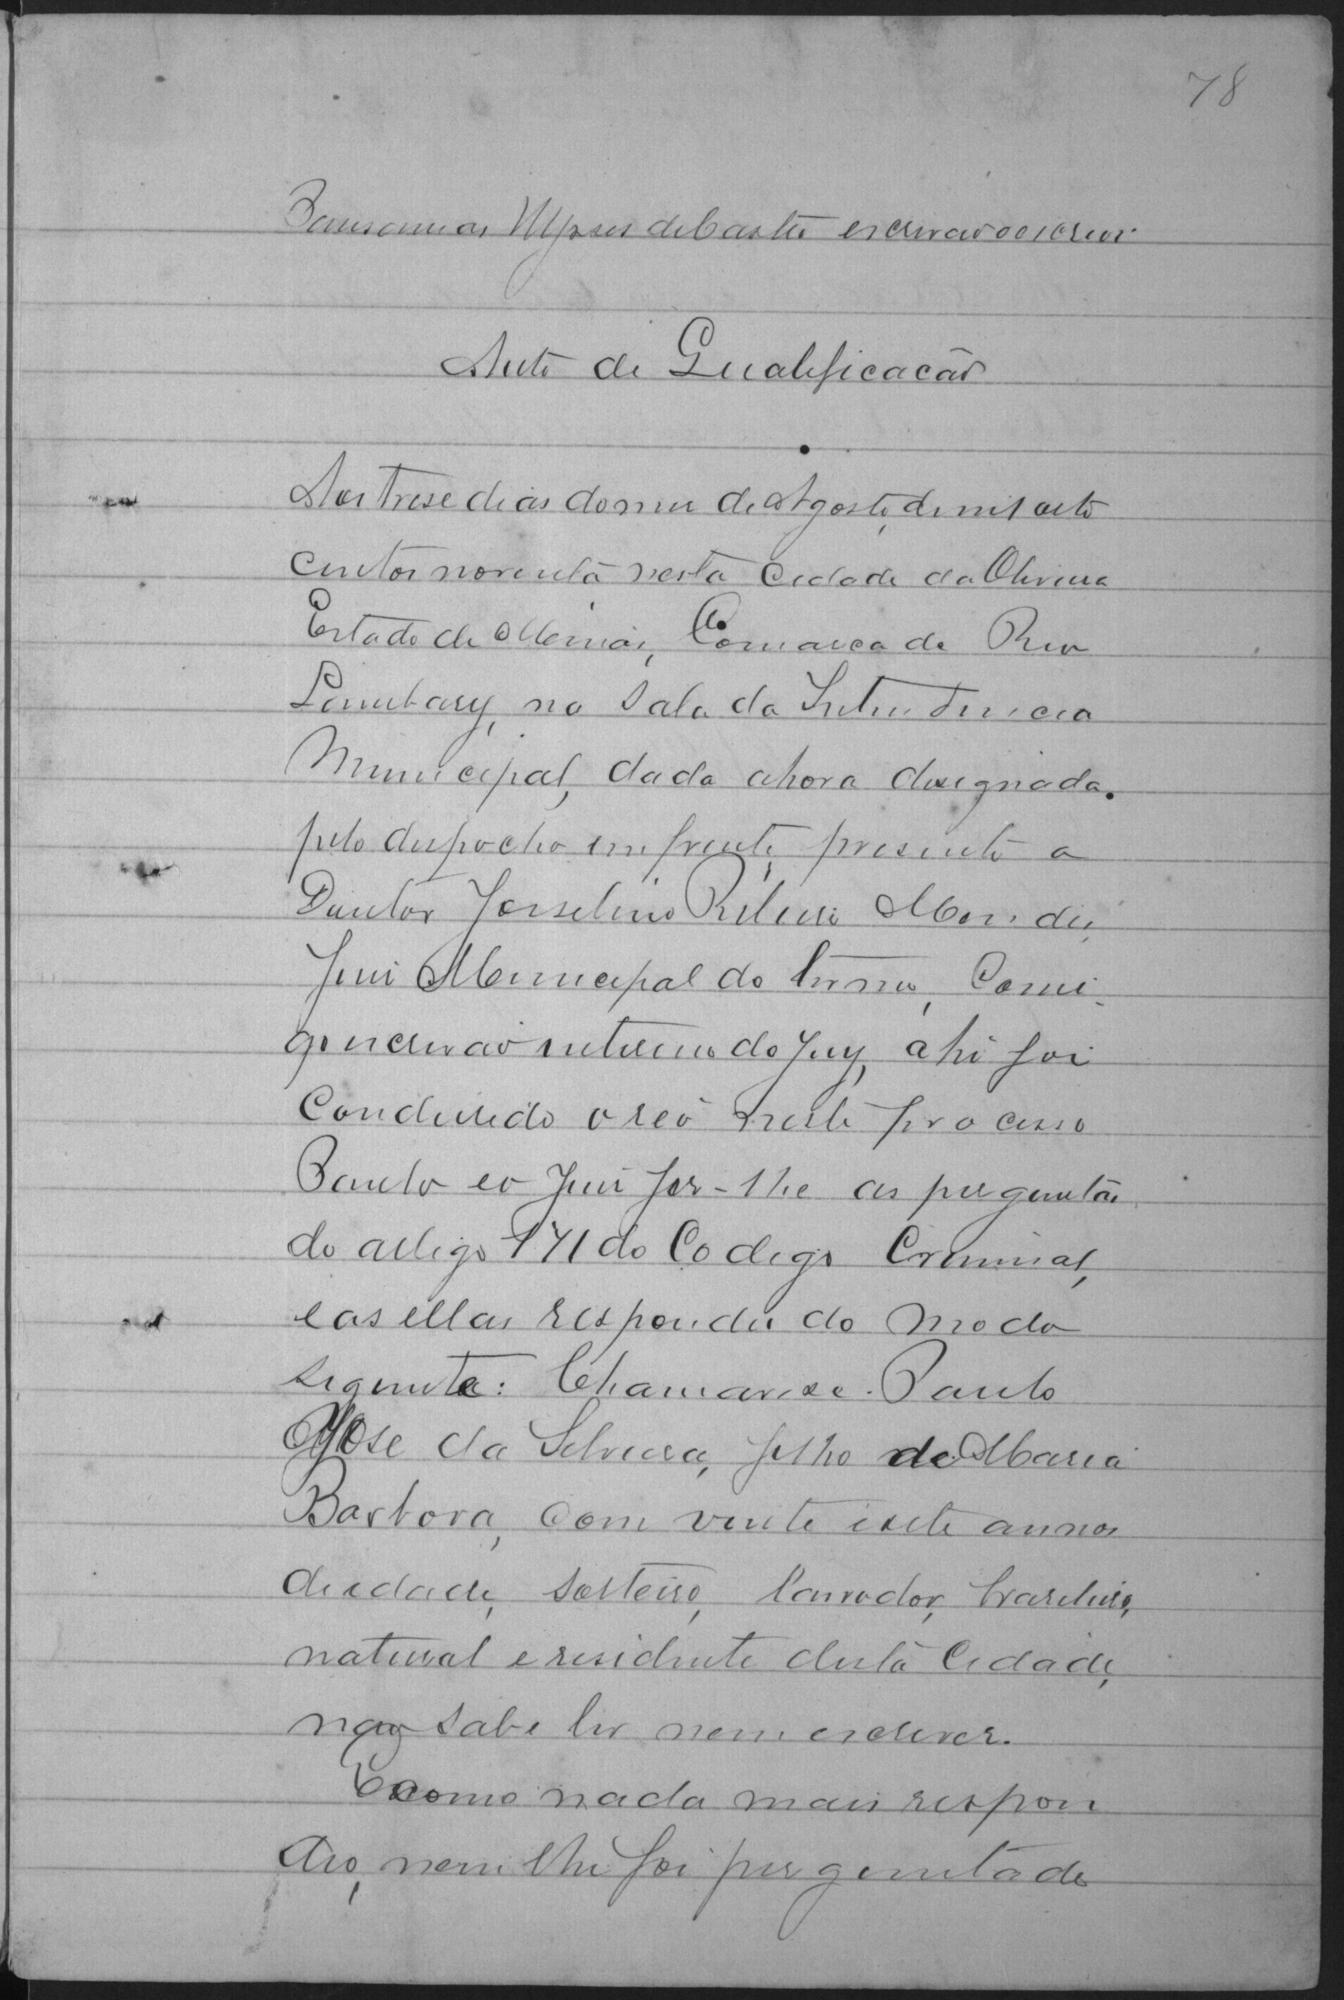 78
Pausanias Ulysses de Castro escrivão o escrevi
Auto de Qualificacão
Aos trese dias do mes de Agosto, de mil oito
centos noventa nesta Cidade da Oliveira
Estado de Minas, Comarca de Rio
Lambary, na Sala da Intendencia
Municipal, dada a hora designada
pelo despacho em frente, presente o
Doutor Josselino Ribeiro Mendes,
Juis Municipal do termo, Comi-
go escrivão interino do Jury, ahi foi
Condusido o reó neste processo
Paulo e o Juis fes-lhe as perguntas
do artigo 171 do Codigo Criminal,
e as ellas respondeu do modo
seguinte: Chamar-se Paulo
José da Silveira, filho de Maria
Barbora, com vinte e sete annos
de edade, solteiro, lavrador, brasileiro,
natural e residente desta Cidade,
não sabe ler nem escrever.
E como nada mais respon
deo, nem lhe foi perguntado